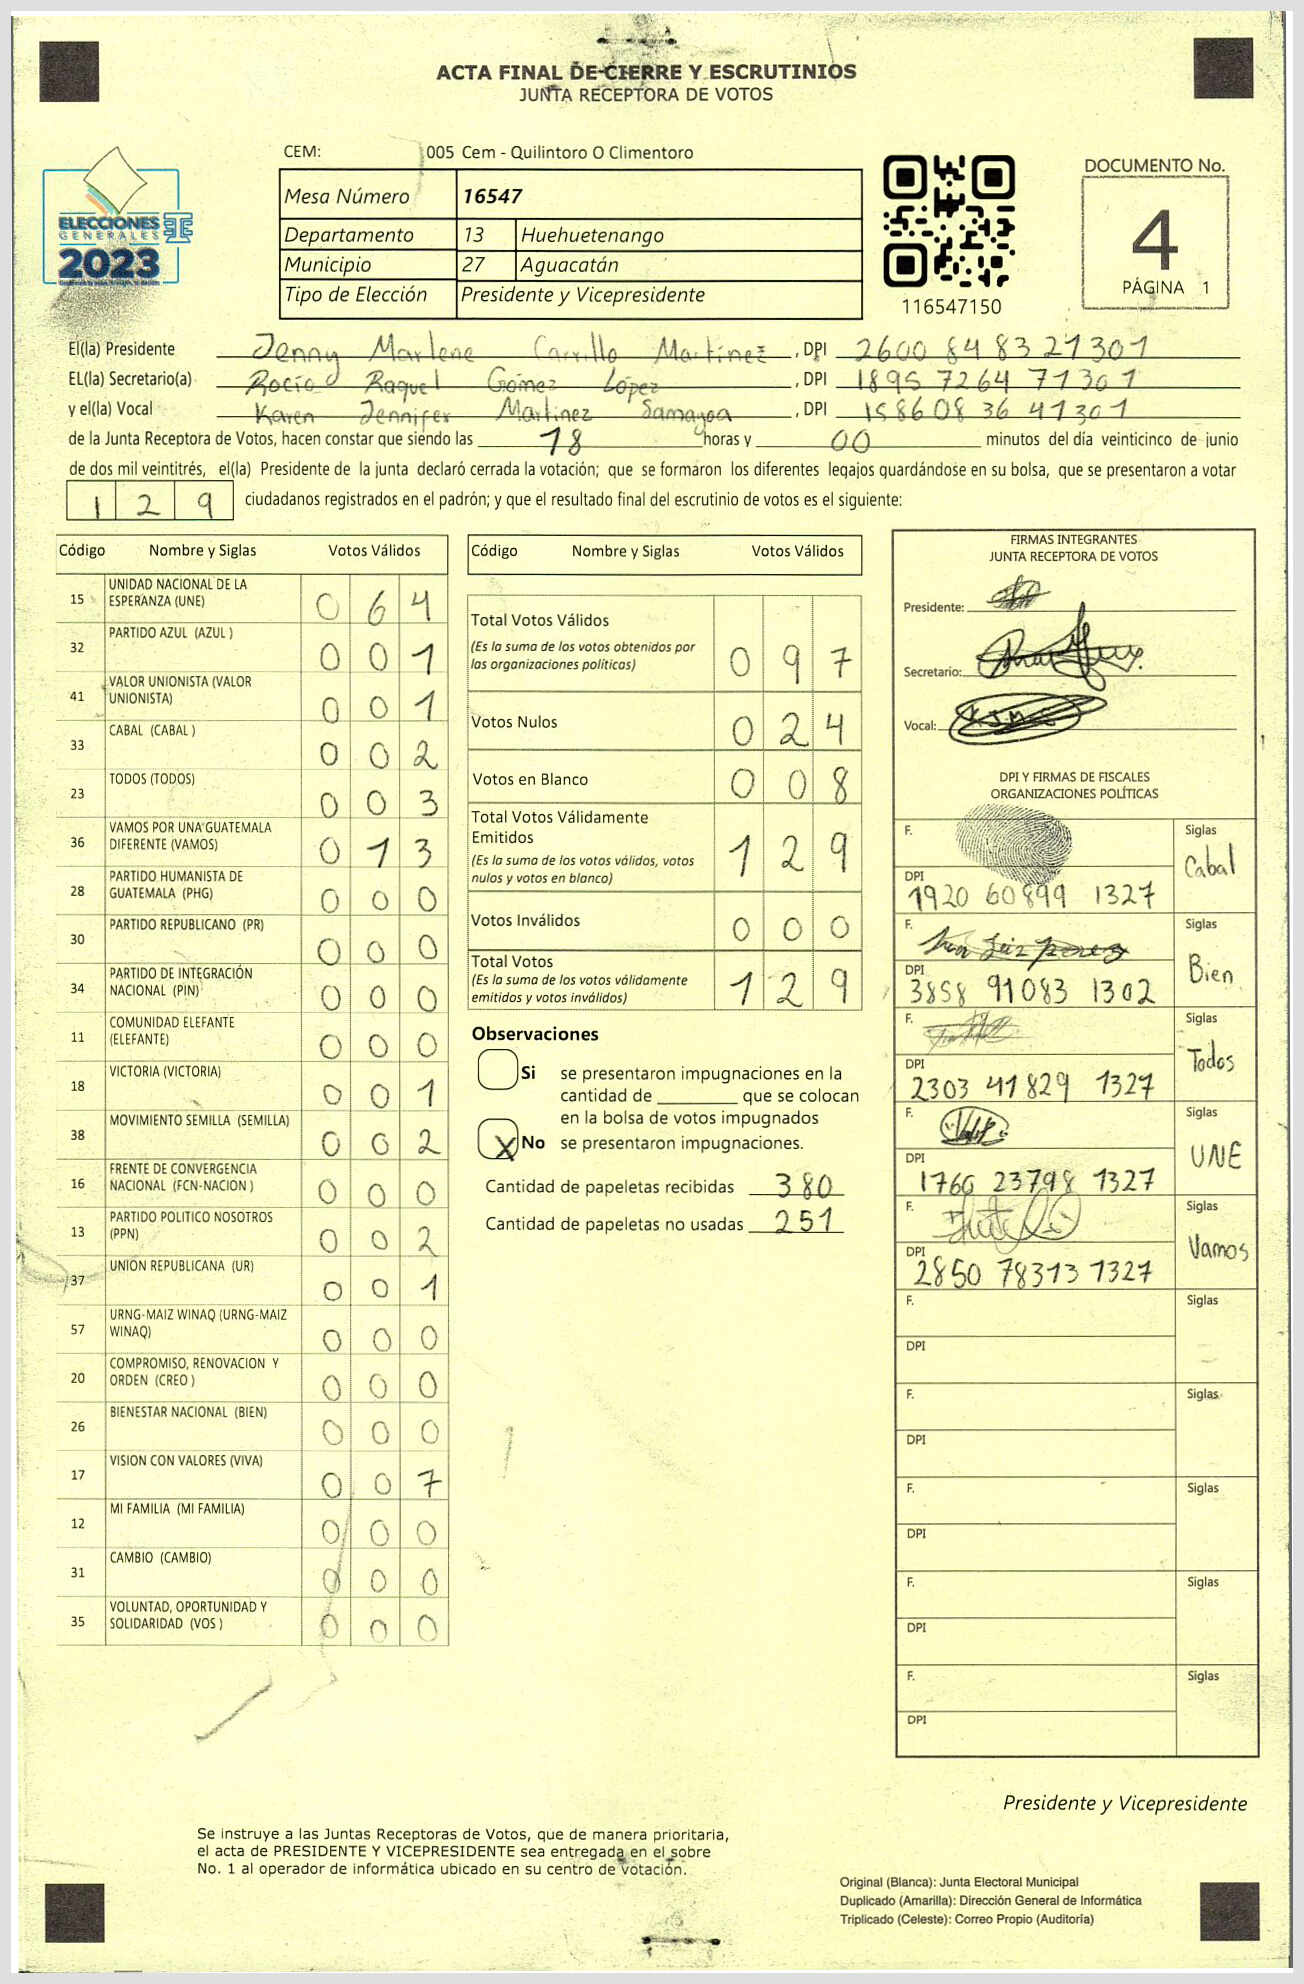 ACTA FINAL DE CIERRE Y ESCRUTINIOS
JUNTA RECEPTORA DE VOTOS
CEM: 005 Cem - Quilintoro O Climentoro
ELECCIONES
GENERALES
2023
Mesa Número 16547
Departamento 13 Huehuetenango
Municipio 27 Aguacatán
Tipo de Elección Presidente y Vicepresidente
116547150
DOCUMENTO No.
4
PÁGINA 1
El(la) Presidente Jenny Marlene Carrillo Martínez, DPI 2600 84832 1301
EL(la) Secretario(a) Rocío Raquel Gómez López, DPI 1895 7264 71301
y el(la) Vocal Karen Jennifer Martinez Samayoa, DPI 15860836 41301
de la Junta Receptora de Votos, hacen constar que siendo las 18 horas y 00 minutos del día veinticinco de junio
de dos mil veintitrés, el(la) Presidente de la junta declaró cerrada la votación; que se formaron los diferentes legajos guardándose en su bolsa, que se presentaron a votar
1 2 9 ciudadanos registrados en el padrón; y que el resultado final del escrutinio de votos es el siguiente:
Código Nombre y Siglas Votos Válidos
15 UNIDAD NACIONAL DE LA ESPERANZA (UNE) 0 6 4
32 PARTIDO AZUL (AZUL ) 0 0 1
41 VALOR UNIONISTA (VALOR UNIONISTA) 0 0 1
33 CABAL (CABAL ) 0 0 2
23 TODOS (TODOS) 0 0 3
36 VAMOS POR UNA GUATEMALA DIFERENTE (VAMOS) 0 1 3
28 PARTIDO HUMANISTA DE GUATEMALA (PHG) 0 0 0
30 PARTIDO REPUBLICANO (PR) 0 0 0
34 PARTIDO DE INTEGRACIÓN NACIONAL (PIN) 0 0 0
11 COMUNIDAD ELEFANTE (ELEFANTE) 0 0 0
18 VICTORIA (VICTORIA) 0 0 1
38 MOVIMIENTO SEMILLA (SEMILLA) 0 0 2
16 FRENTE DE CONVERGENCIA NACIONAL (FCN-NACION ) 0 0 0
13 PARTIDO POLITICO NOSOTROS (PPN) 0 0 2
37 UNION REPUBLICANA (UR) 0 0 1
57 URNG-MAIZ WINAQ (URNG-MAIZ WINAQ) 0 0 0
20 COMPROMISO, RENOVACION Y ORDEN (CREO ) 0 0 0
26 BIENESTAR NACIONAL (BIEN) 0 0 0
17 VISION CON VALORES (VIVA) 0 0 7
12 MI FAMILIA (MI FAMILIA) 0 0 0
31 CAMBIO (CAMBIO) 0 0 0
35 VOLUNTAD, OPORTUNIDAD Y SOLIDARIDAD (VOS ) 0 0 0
Código Nombre y Siglas Votos Válidos
Total Votos Válidos 0 9 7
(Es la suma de los votos obtenidos por
las organizaciones políticas)
Votos Nulos 0 2 4
Votos en Blanco 0 0 8
Total Votos Válidamente
Emitidos 1 2 9
(Es la suma de los votos válidos, votos
nulos y votos en blanco)
Votos Inválidos 0 0 0
Total Votos 1 2 9
(Es la suma de los votos válidamente
emitidos y votos inválidos)
Observaciones
Si se presentaron impugnaciones en la
cantidad de ________ que se colocan
en la bolsa de votos impugnados
X No se presentaron impugnaciones.
Cantidad de papeletas recibidas 380
Cantidad de papeletas no usadas 251
FIRMAS INTEGRANTES
JUNTA RECEPTORA DE VOTOS
Presidente:
Secretario:
Vocal: KJMS
DPI Y FIRMAS DE FISCALES
ORGANIZACIONES POLÍTICAS
F. Siglas
DPI 1920 60899 1327 Cabal
F. Siglas
DPI 3858 91083 1302 Bien
F. Siglas
DPI 2303 41829 1327 Todos
F. Siglas
DPI 1760 23798 1327 UNE
F. Siglas
DPI 2850 78313 1327 Vamos
F. Siglas
DPI
F. Siglas
DPI
F. Siglas
DPI
F. Siglas
DPI
F. Siglas
DPI
Presidente y Vicepresidente
Se instruye a las Juntas Receptoras de Votos, que de manera prioritaria,
el acta de PRESIDENTE Y VICEPRESIDENTE sea entregada en el sobre
No. 1 al operador de informática ubicado en su centro de votación.
Original (Blanca): Junta Electoral Municipal
Duplicado (Amarilla): Dirección General de Informática
Triplicado (Celeste): Correo Propio (Auditoría)